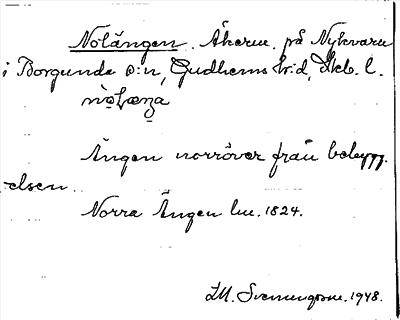 Nolängen. Åkerm. på Nykvarn
i Borgunda s:n, Gudhems hd, Skb. l.
Ängen norröver från bebygg-
elsen.
Norra Ängen lm. 1824.
1948.